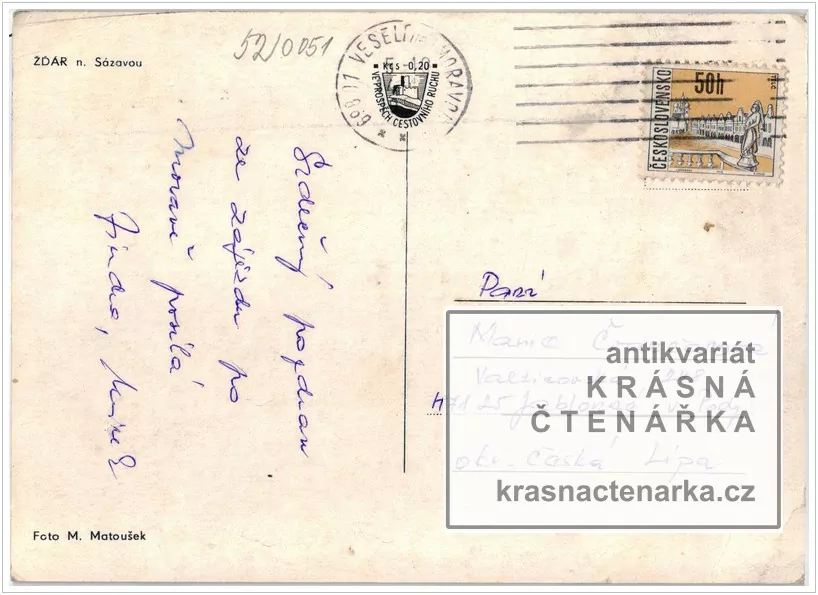 52/0051
ŽDÁR n. Sázavou
VESELÍ MORAVOU
Kčs -0,20
VE PROSPĚCH CESTOVNÍHO RUCHU
ČESKOSLOVENSKO
50h
Srdečný pozdrav
ze zájezdu po
Moravě posílá
Jindra,
Paní
antikvariát
KRÁSNÁ
ČTENÁŘKA
krasnactenarka.cz
471 25 Jablonné v Podj
okr. Česká Lípa
Foto M. Matoušek